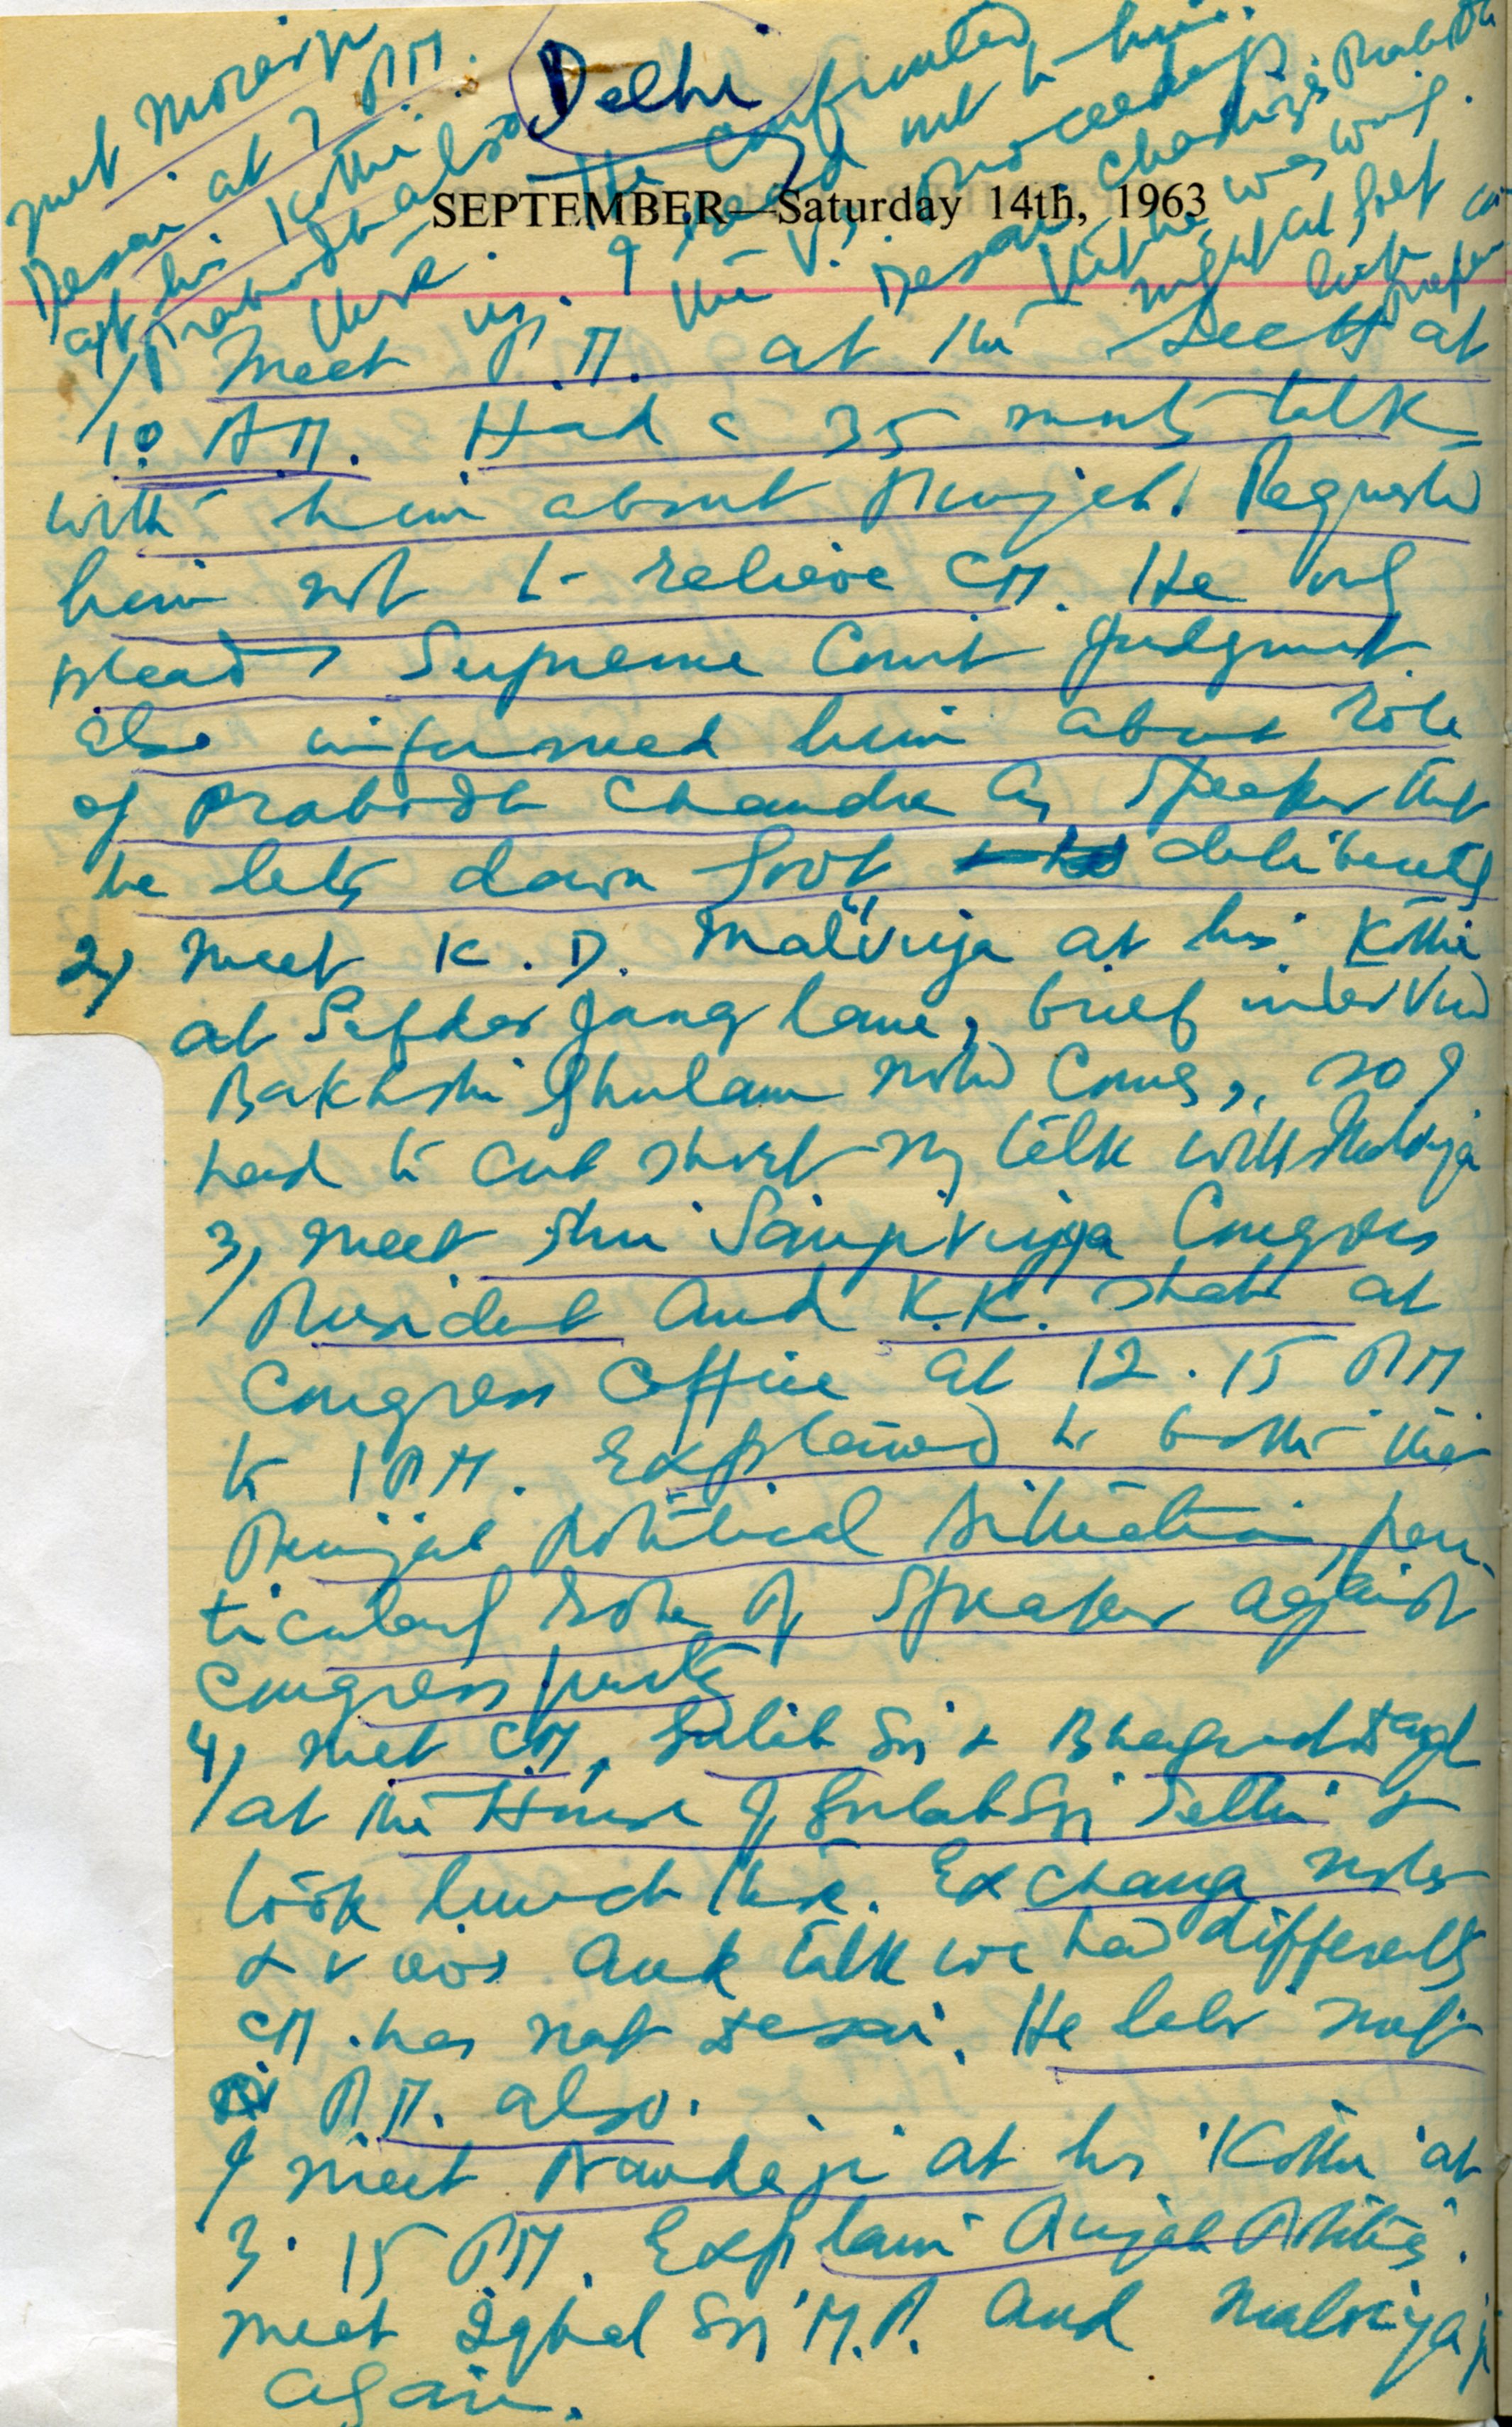 Delhi
met Morarji
Desai at 7 PM.
at his Kothi
Prabodh also
there.
He confronted
us. I read out to him
the V.S. proceedings
Desai chastised Prabodh
that he was wrong.
might at felt
SEPTEMBER—Saturday 14th, 1963
1) Meet P.M. at the Sectt at
10 A.M. Had a 35 mnts talk
with him about Punjab. Requested
him not to relieve CM. He only
pleads Supreme Court Judgment.
Also informed him about role
of Prabodh Chandra as Speaker that
he lets down Govt deliberately
2) Meet K. D. Malviya at his Kothi
at Safdar Jang lane, brief interview
Bakhshi Ghulam Mohd comes, so I
had to cut short my talk with Malviya
3, Meet Shri Sanjivayya Congress
President and K.K. Shah at
Congress Office at 12.15 PM
to 1 PM. Explained to both the
Punjab political situation, par-
ticularly role of Speaker against
Congress party
4, Met CM, Gulab Sn & Bhagwat Dayal
at the House of Gulab Sn Sethi &
took lunch there. Exchange notes
& views and talk we had differently
CM has met Desai. He later met
P.M. also.
I meet Nandaji at his Kothi at
3.15 PM. Explain Punjab Politics.
Meet Iqbal Sn M.P. and Malviyaji
again.